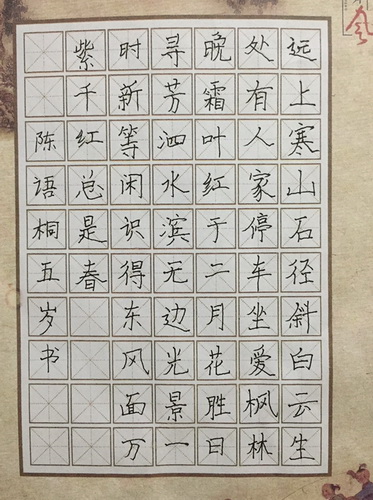 远上寒山石径斜白云生
处有人家停车坐爱枫林
晚霜叶红于二月花胜日
寻芳泗水滨无边光景一
时新等闲识得东风面万
紫千红总是春
陈語桐五岁书